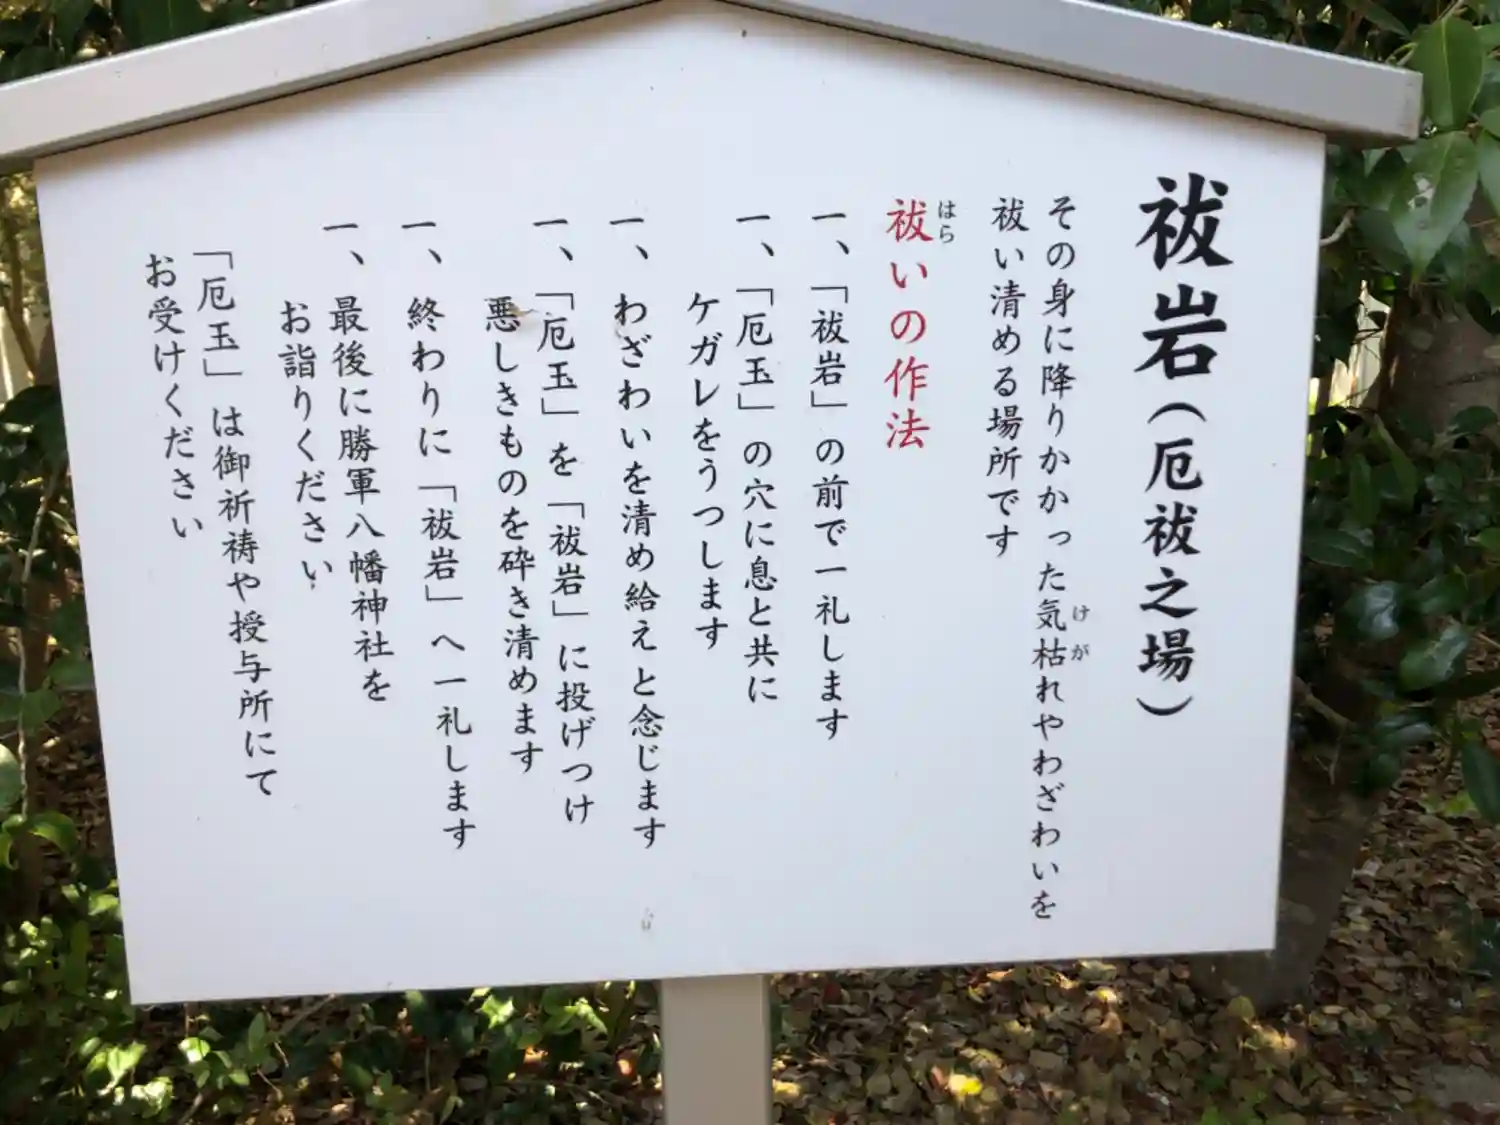 祓岩（厄祓之場）
その身に降りかかった気枯れやわざわいを
けが
祓い清める場所です
祓いの作法
はら
一、「祓岩」の前で一礼します
一、「厄玉」の穴に息と共に
ケガレをうつします
一、わざわいを清め給えと念じます
一、「厄玉」を「祓岩」に投げつけ
悪しきものを砕き清めます
一、終わりに「祓岩」へ一礼します
一、最後に勝軍八幡神社を
お詣りください
「厄玉」は御祈祷や授与所にて
お受けください